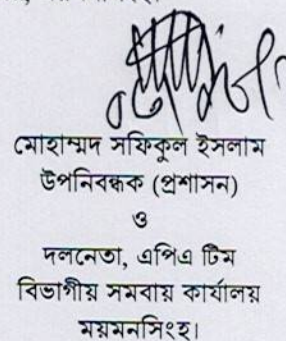 মোহাম্মদ সফিকুল ইসলাম
উপনিবন্ধক (প্রশাসন)
ও
দলনেতা, এপিএ টিম
বিভাগীয় সমবায় কার্যালয়
ময়মনসিংহ।